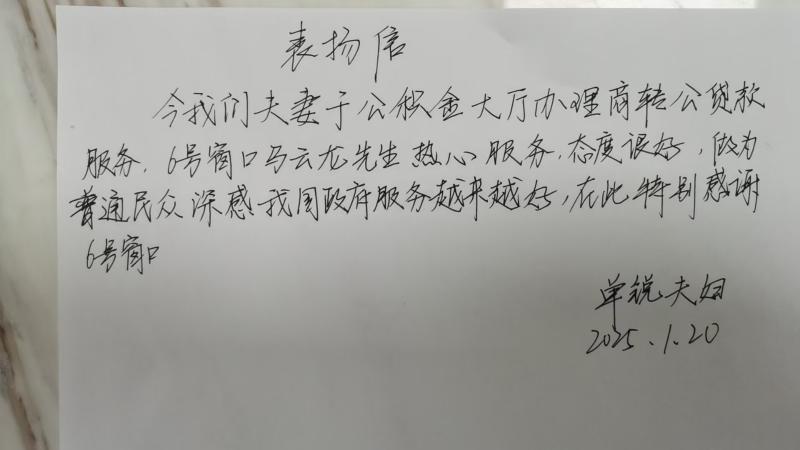 表扬信
今我们夫妻于公积金大厅办理商转公贷款
服务,6号窗口马云龙先生热心服务,态度很好,做为
普通民众深感我国政府服务越来越好,在此特别感谢
6号窗口
单锐夫妇
2025.1.20